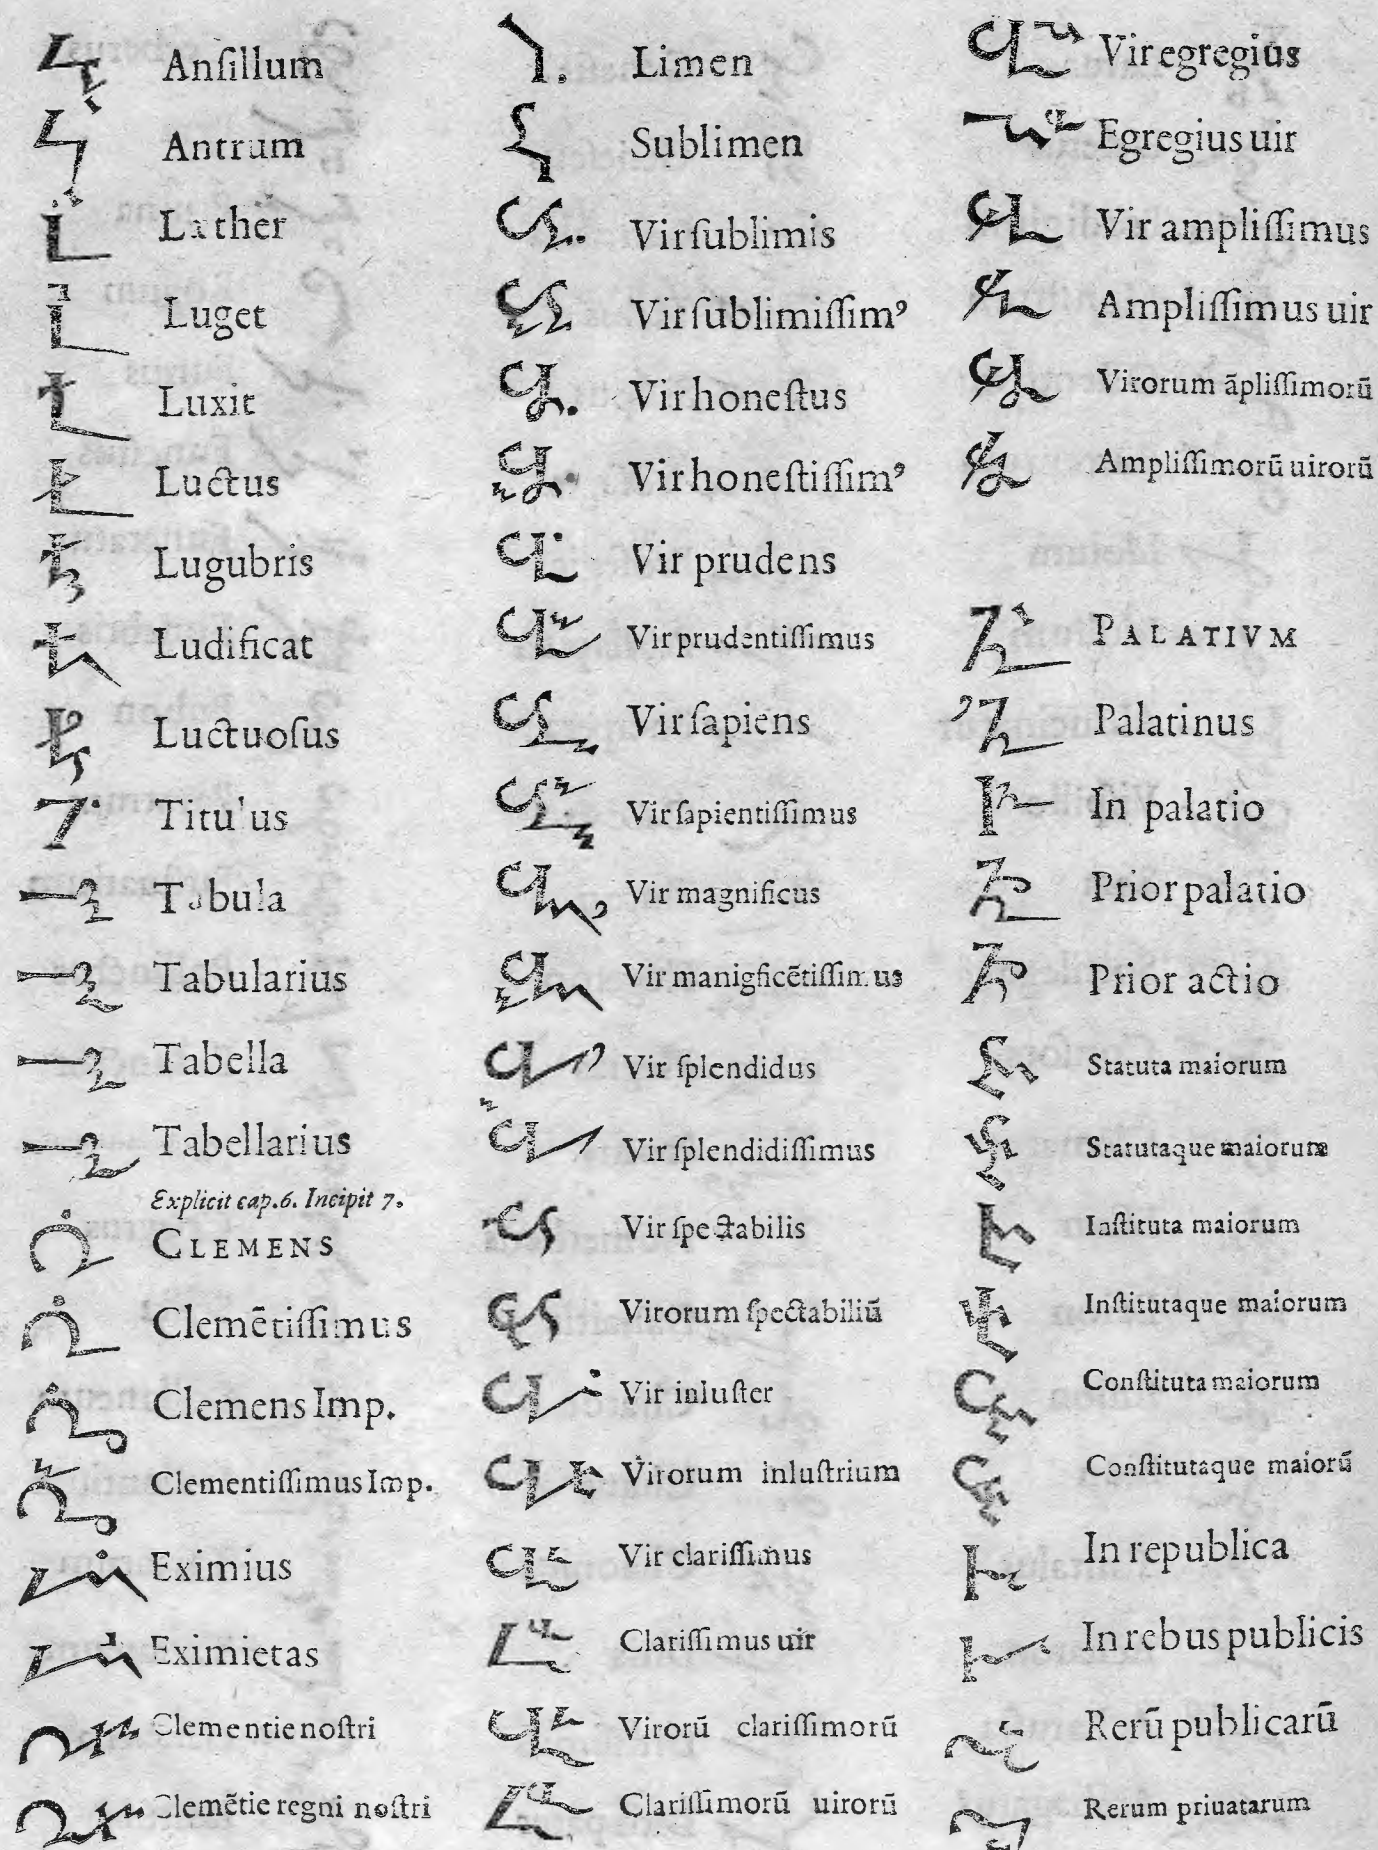 Anſillum
Antrum
Lather
Luget
Luxit
Luctus
Lugubris
Ludificat
Luctuoſus
Titulus
Tabula
Tabularius
Tabella
Tabellarius
Explicit cap.6. Incipit 7.
CLEMENS
Clemētiſſimus
Clemens Imp.
Clementiſſimus Imp.
Eximius
Eximietas
Clementie noſtri
Clemētie regni noſtri
Limen
Sublimen
Vir ſublimis
Vir ſublimiſſimꝰ
Vir honeſtus
Vir honeſtiſſimꝰ
Vir prudens
Vir prudentiſſimus
Vir ſapiens
Vir ſapientiſſimus
Vir magnificus
Vir manigficētiſſimus
Vir ſplendidus
Vir ſplendidiſſimus
Vir ſpectabilis
Virorum ſpectabiliū
Vir inluſter
Virorum inluſtrium
Vir clariſſimus
Clariſſimus uir
Virorū clariſſimorū
Clariſſimorū uirorū
Vir egregius
Egregius uir
Vir ampliſſimus
Ampliſſimus uir
Virorum āpliſſimorū
Ampliſſimorū uirorū
PALATIVM
Palatinus
In palatio
Prior palatio
Prior actio
Statuta maiorum
Statutaque maiorum
Inſtituta maiorum
Inſtitutaque maiorum
Conſtituta maiorum
Conſtitutaque maiorū
In republica
In rebus publicis
Rerū publicarū
Rerum priuatarum